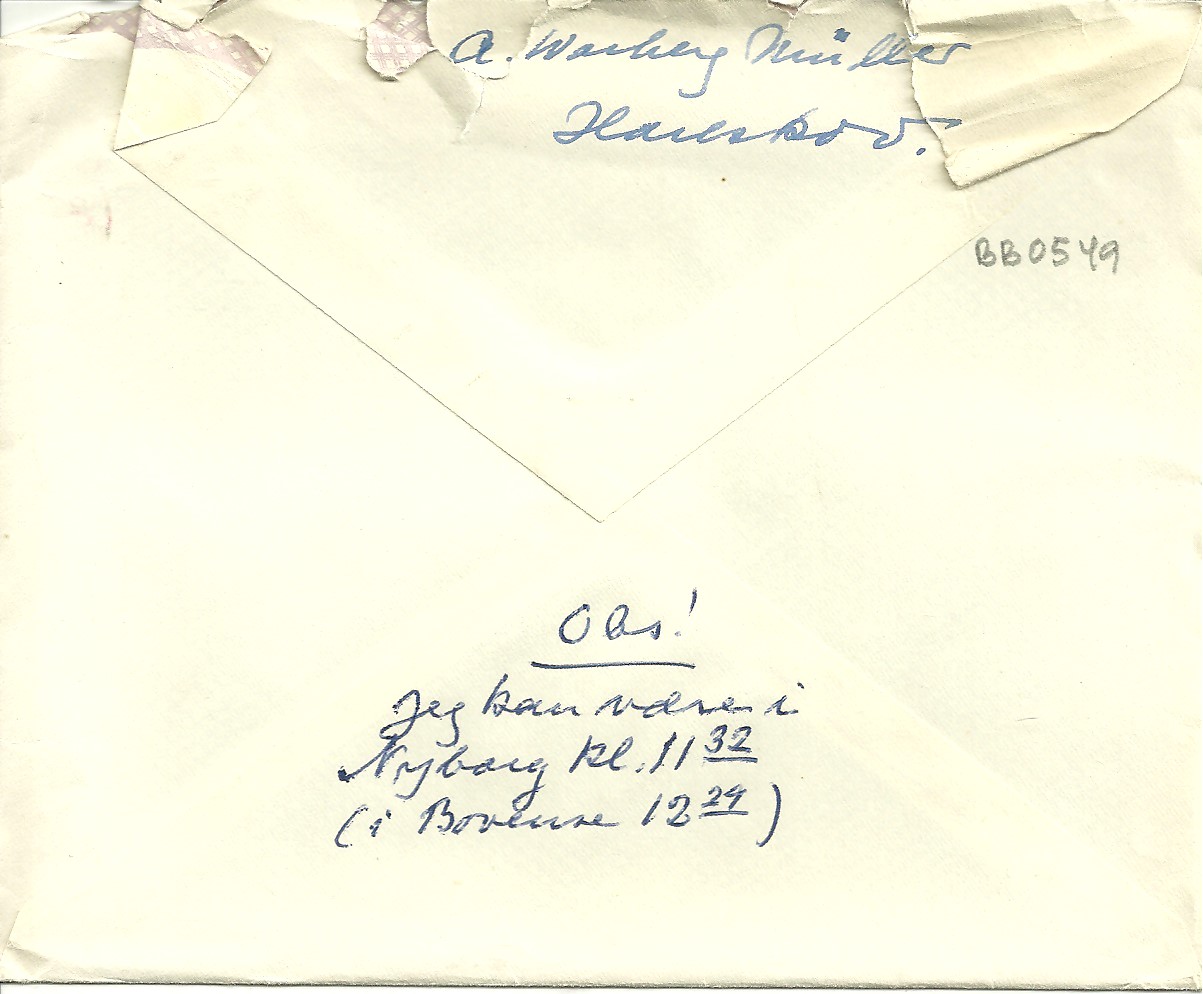 A. Warberg Müller
Hareskov.
BB0549
Obs!
Jeg kan være i
Nyborg kl. 11 32
(i Bovense 12 24)